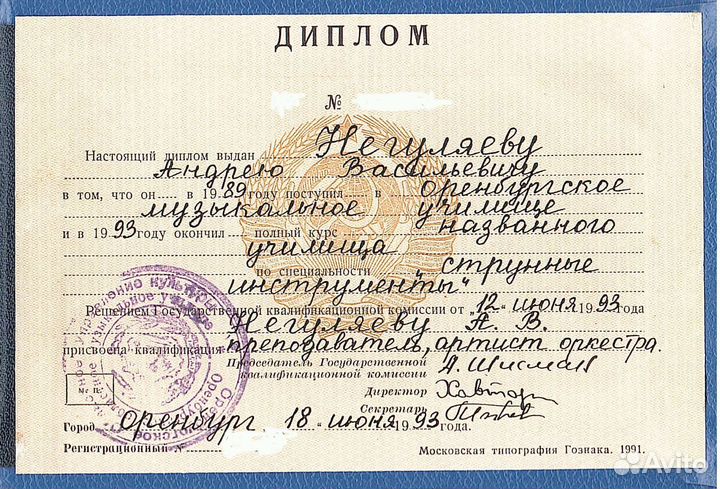 ДИПЛОМ
№
Настоящий диплом выдан Негуляеву
Андрею Васильевичу
в том, что он в 1989 году поступил в Оренбургское
музыкальное училище
и в 1993 году окончил полный курс названного
училища
по специальности „струнные
инструменты"
Решением Государственной квалификационной комиссии от „12" июня 1993 года
Негуляеву А. В.
присвоена квалификация преподаватель, артист оркестра.
Председатель Государственной
квалификационной комиссии
Директор
Секретарь
Город Оренбург, 18 июня 1993 года.
Регистрационный №
Московская типография Гознака. 1991.
М. П.
Управление культуры
Оренбургское
Avito